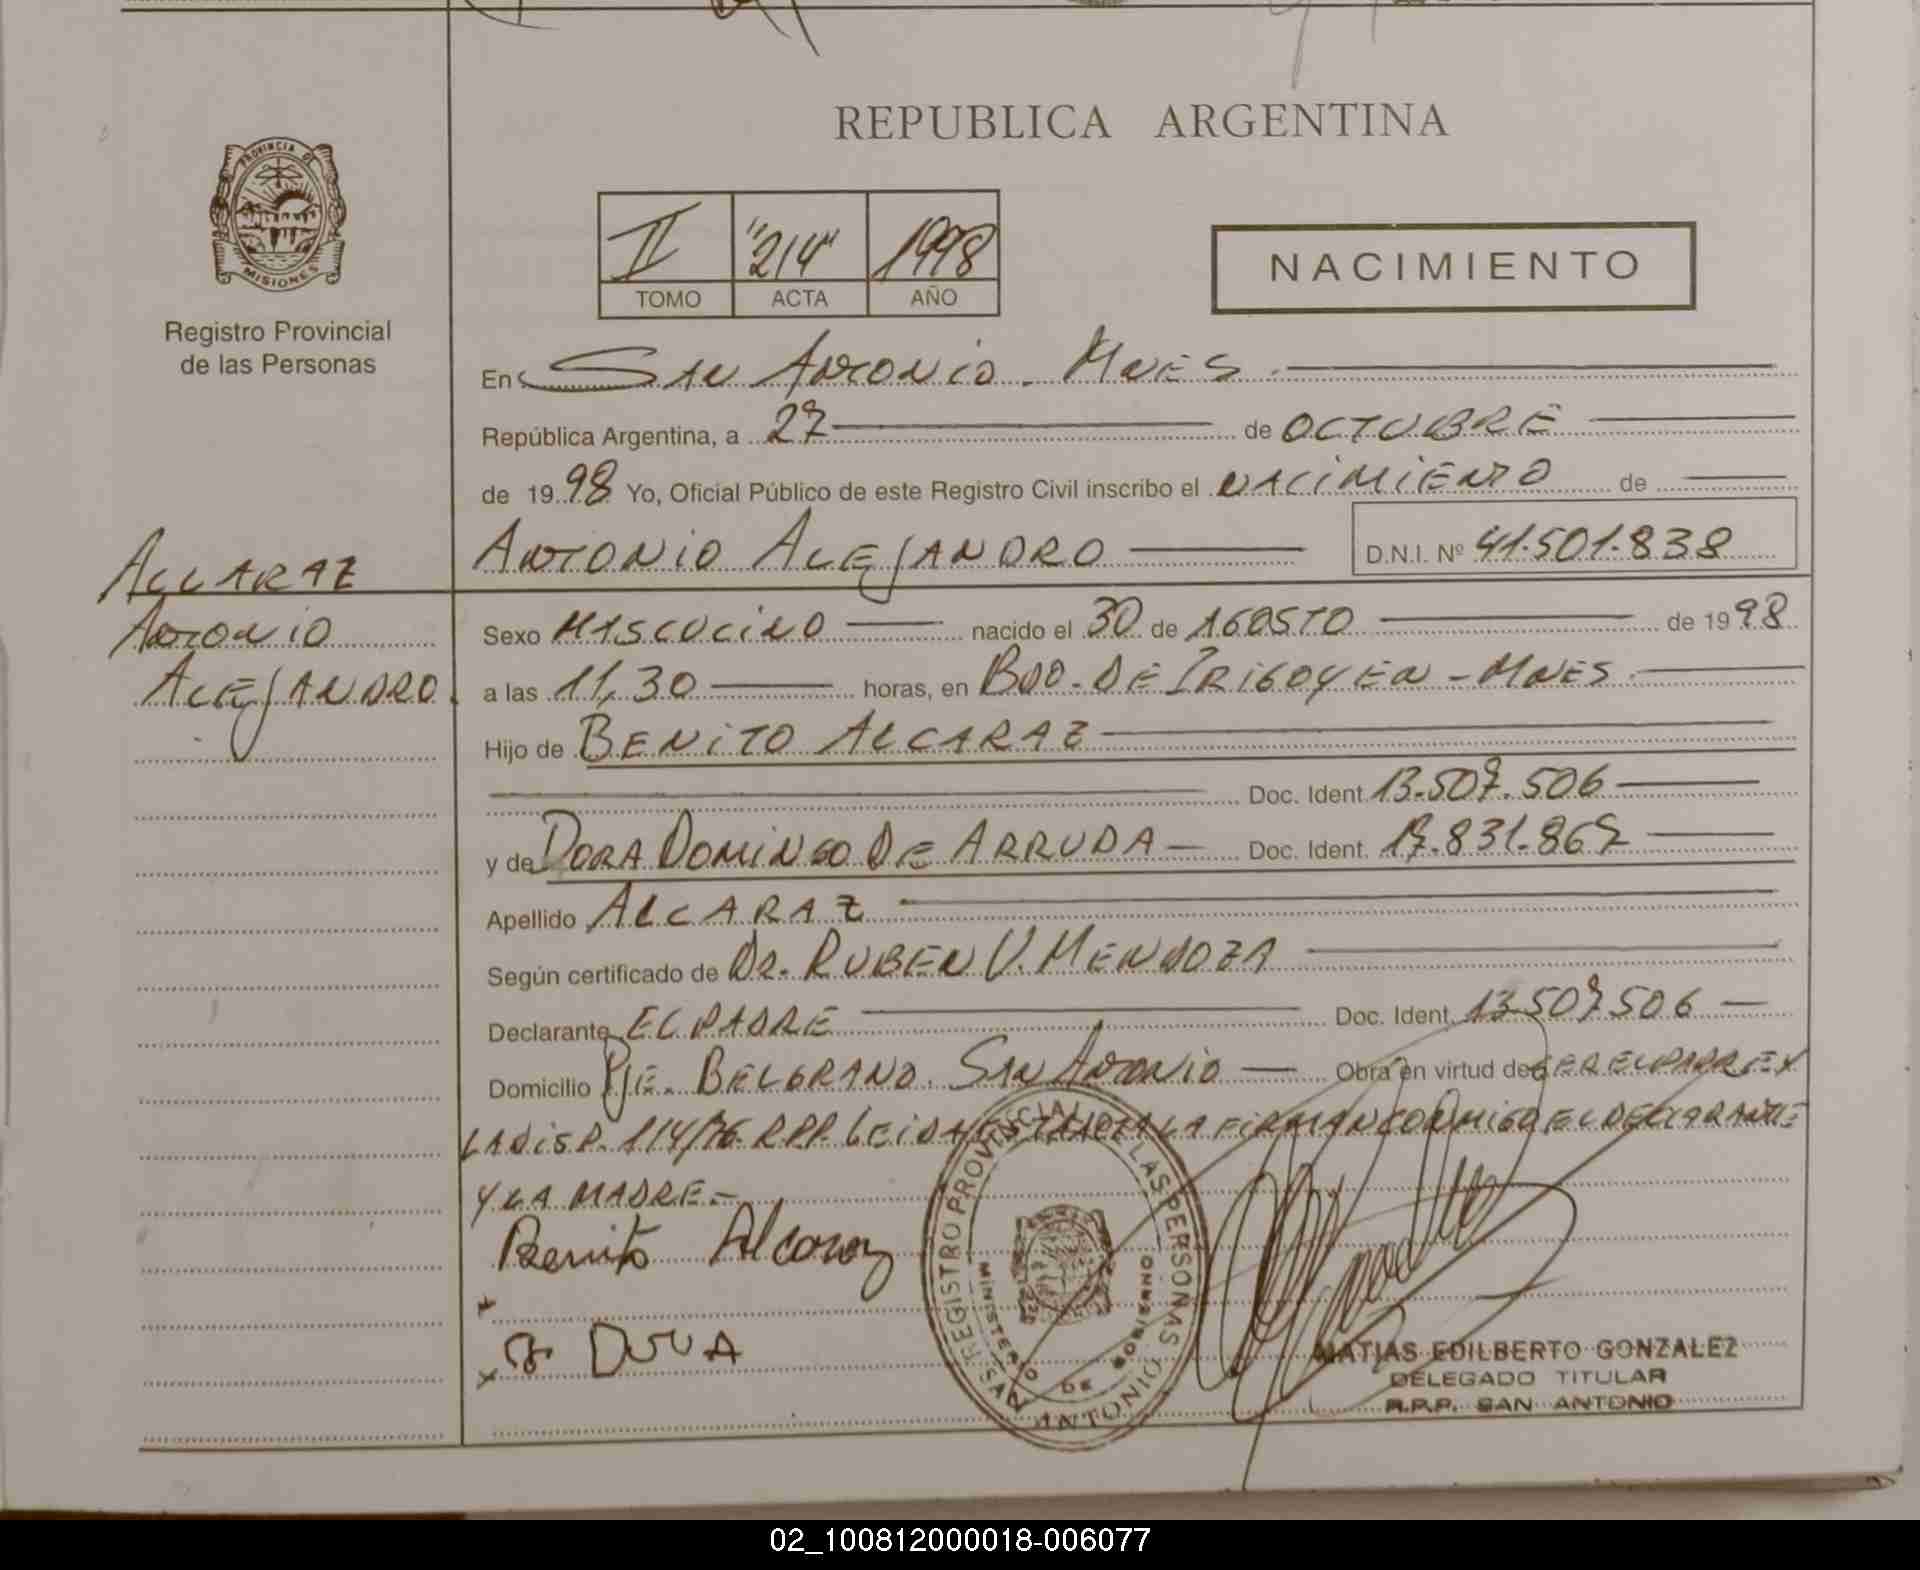 REPUBLICA ARGENTINA
PROVINCIA DE
MISIONES
Registro Provincial
de las Personas
II "214" 1998
TOMO ACTA AÑO
NACIMIENTO
En SAN ANTONIO. MNES.
República Argentina, a 27 de OCTUBRE
de 1998 Yo, Oficial Público de este Registro Civil inscribo el NACIMIENTO de
ANTONIO ALEJANDRO D.N.I. Nº 41.501.838
ALCARAZ
ANTONIO
ALEJANDRO.
Sexo MASCULINO nacido el 30 de AGOSTO de 1998
a las 11,30 horas, en BDO. DE IRIGOYEN - MNES.
Hijo de BENITO ALCARAZ
Doc. Ident. 13.507.506
y de DORA DOMINGO DE ARRUDA Doc. Ident. 17.831.867
Apellido ALCARAZ
Según certificado de DR. RUBEN V. MENDOZA
Declarante EL PADRE Doc. Ident. 13507506
Domicilio PJE. BELGRANO. SAN ANTONIO Obra en virtud de SER EL PADRE X
LA DISP. 114/76. R.P.P. LEIDA ESTA ACTA LA FIRMAN CONMIGO EL DECLARANTE
Y LA MADRE.-
Benito Alcaraz
x
x
REGISTRO PROVINCIAL DE LAS PERSONAS
MINISTERIO DE GOBIERNO
SAN ANTONIO
MATIAS EDILBERTO GONZALEZ
DELEGADO TITULAR
R.P.P. SAN ANTONIO
02_100812000018-006077